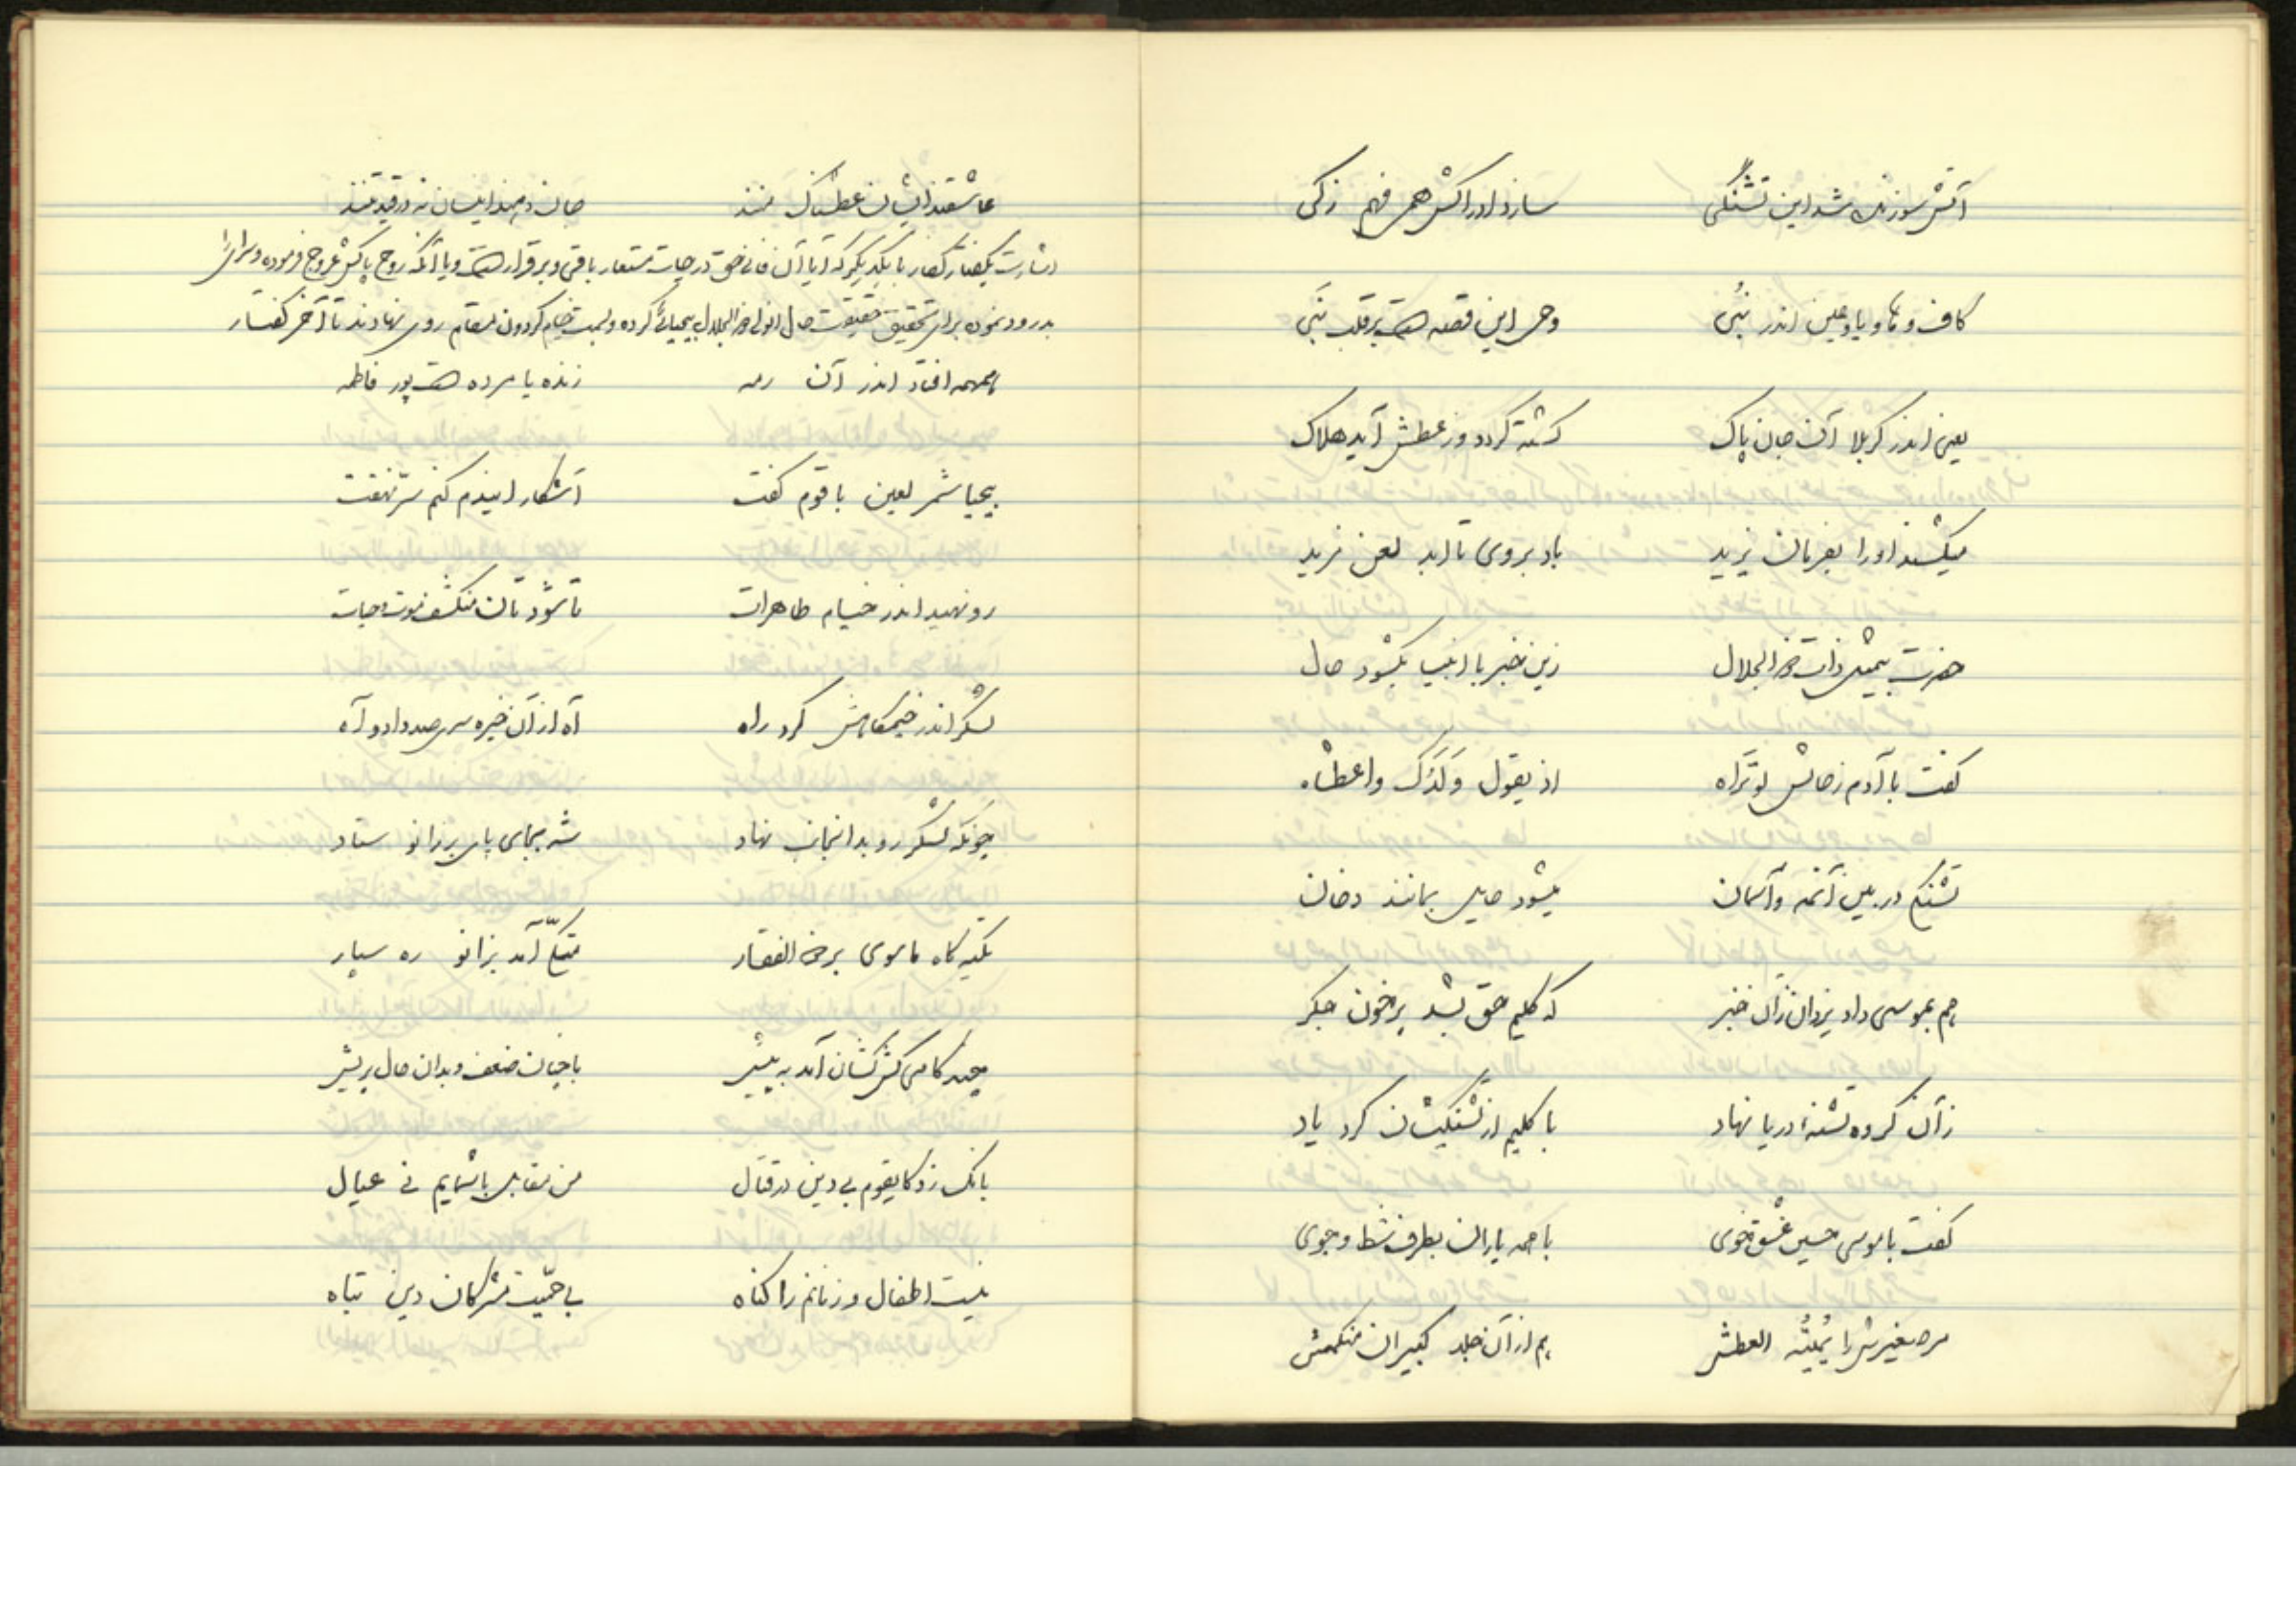 آتش سوزنده شد این تشنگی سازد ادراکش همی فهم زکی
کاف و ها و یا و عین اندر نُبی وحی این قصه است بر قلب نبَی
یعنی اندر کربلا آن جان پاک کشته گردد وز عطش آید هلاک
میکشند او را بفرمان یزید باد بر وی تا ابد لعن مزید
حضرت بیمثل ذات ذو الجلال زین خبر با انبیا بگشود حال
گفت با آدم ز حالش لو تَراه اذ یقول وَلَدُک واعطشاه
تشنگی در بین آنمه و آسمان میشود حایل بمانند دخان
هم بموسی داد یزدان زآن خبر که کلیم حق بشد پرخون جگر
زآن گروه تشنهٔ دریا نهاد با کلیم از تشنگیشان کرد یاد
گفت با موسی حسین عشق خوی با همه یاران بطرف شط و جوی
مر صغیرش را یُمیتُه العطش هم از آن جلد کبیران منکمش
عاشقند ایشان عطشناک منند جان دهند ایشان نه در قید تنند
اشارت بگفتار کفار با یکدیگر که آیا آن فانی حق در حیات مستعار باقی و برقرار است و یا آنکه روح پاکش عروج فرموده و سرای را
بدرود نموده برای تحقیق حقیقت حال آنولی ذو الجلال بیحیائی کرده و بسمت خیام گردون مقام روی نهادند تا آخر گفتار
همهمه افتاد اندر آن رمه زنده یا مرده است پور فاطمه
بیحیا شمر لعین با قوم گفت آشکار ایندم کنم سرّ نهفت
رو نهید اندر خیام طاهرات تا شود تان منکشف موت و حیات
لشکر اندر خیمگاهش کرد راه آه از آن خیره سری صد داد و آه
چونکه لشکر رو بدانجانب نهاد شه بجای پای بر زانو ستاد
تکیه گاه ماسوی بر ذو الفقار متکّی آمد بزانو ره سپار
چند گامی کش کشان آمد به پیش با چنان ضعف و بدان حال پریش
بانگ زد کایقوم بی دین در قتال من مقابل با شمایم نی عیال
نیست اطفال و زنانم را گناه بی حمّیت مشرکان دین تباه